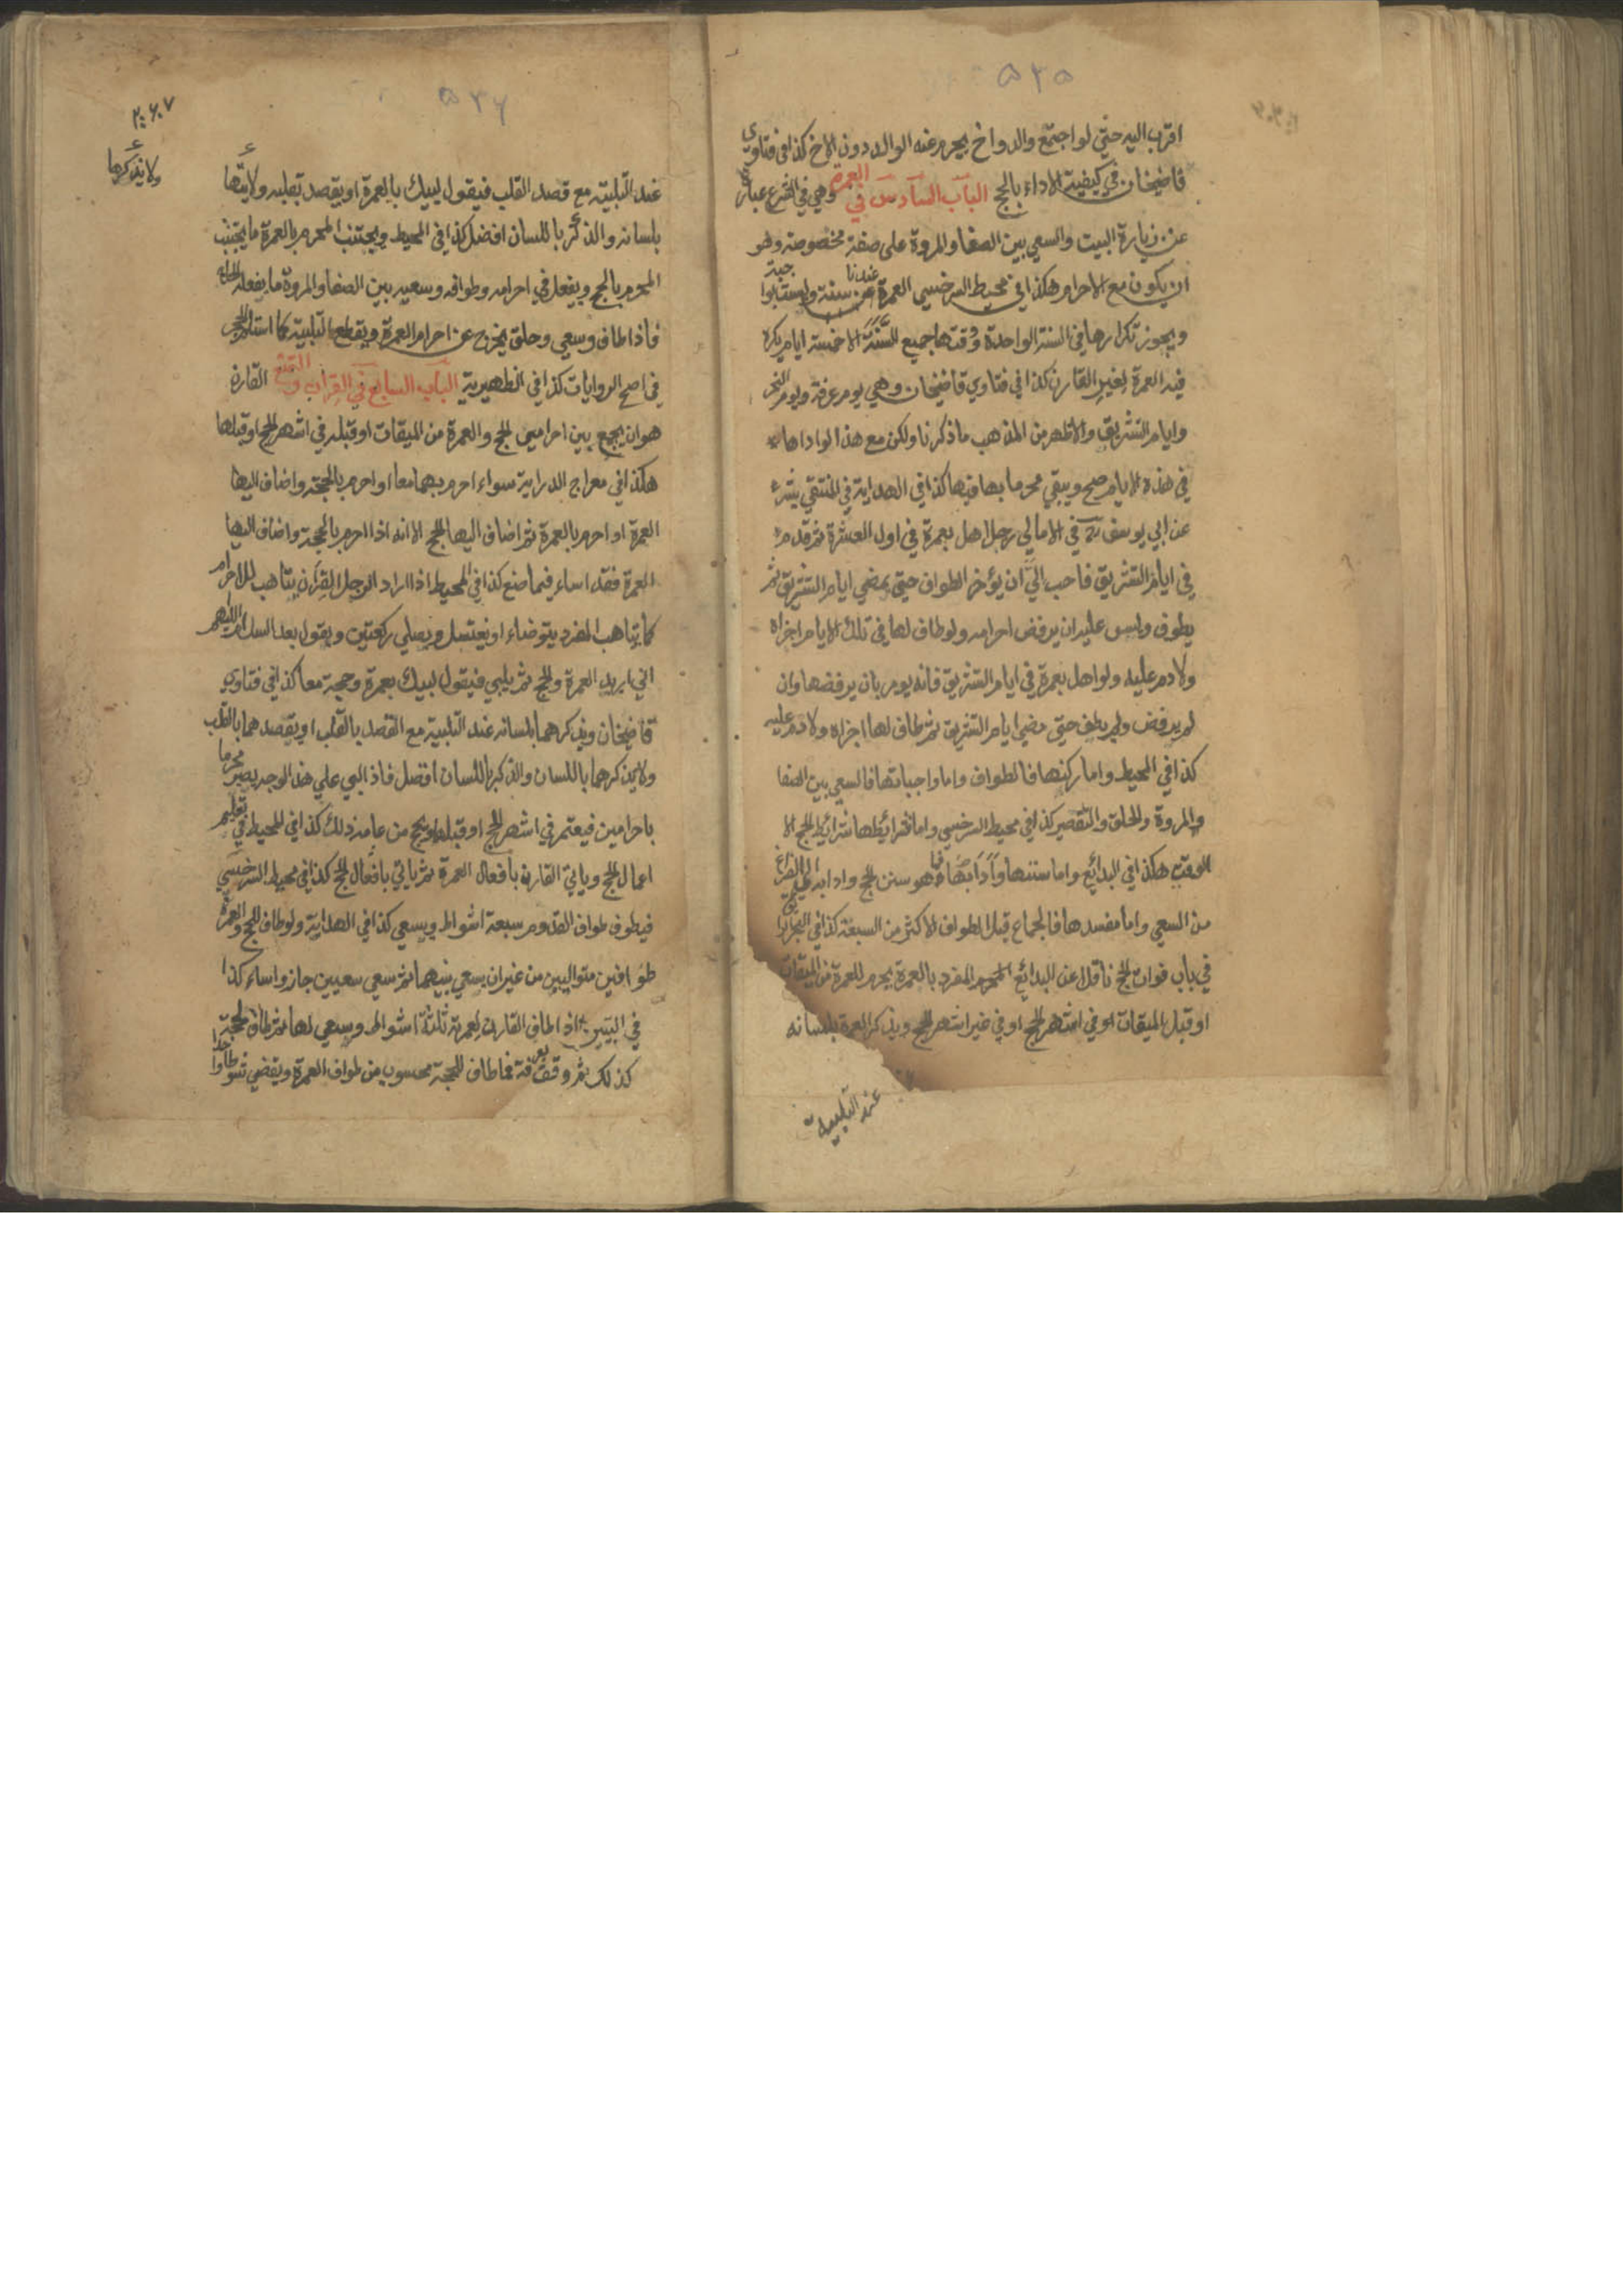 ٥٣٥
اقرب اليه حتي لو اجتمع والد واخ يحرم عنه الوالد دون الاخ كذا في فتاوي
قاضيخان في كيفية الاداء بالحج الباب السادس في العمرة وهي في الشرع عبارة
عن زيارة البيت والسعي بين الصفا والمروة على صفة مخصوصة وهو
ان يكون مع الاحرام هكذا في محيط السرخسي العمرة عندنا سنة وليست بواجبة
ويجوز تكرارها في السنة الواحدة وقتها جميع السنة الا خمسة ايام يكره
فيه العمرة لغير القارن كذا في فتاوي قاضيخان وهي يوم عرفة ويوم النحر
وايام التشريق والاظهر من المذهب ما ذكرنا ولكن مع هذا لو اداها
في هذه الايام صح ويبقي محرما بها فيها كذا في الهداية في المنتقي بشر
عن ابي يوسف رح في الامالي رجل اهل بعمرة في اول العشرة ثم قدم
في ايام التشريق فاحب الي ان يؤخر الطواف حتي يمضي ايام التشريق ثم
يطوف وليس عليه ان يرفض احرامه ولو طاف لها في تلك الايام اجزاه
ولا دم عليه ولو اهل بعمرة في ايام التشريق فانه يومر بان يرفضها وان
لم يرفض ولم يطف حتي مضي ايام التشريق ثم طاف لها اجزاه ولا دم عليه
كذا في المحيط واما ركنها فالطواف واما واجباتها فالسعي بين الصفا
والمروة والحلق والتقصير كذا في محيط السرخسي واما شرائطها شرائط الحج الا
الوقت هكذا في البدائع واما سننها وآدابها فما هو سنن الحج وادابه الي الفراغ
من السعي واما مفسدها فالجماع قبل الطواف الاكثر من السبعة كذا في البحر الرائق
في باب فوات الحج ناقلا عن البدائع المحرم المفرد بالعمرة يحرم للعمرة من الميقات
او قبل الميقات او في اشهر الحج او في غير اشهر الحج ويذكر العمرة بلسانه
عند التلبية
٥٣٦
ولا يذكرها
عند التلبية مع قصد القلب فيقول لبيك بالعمرة او يقصد بقلبه
بلسانه والذكر باللسان افضل كذا في المحيط ويجتنب المحرم بالعمرة ما يجتنب
المحرم بالحج ويفعل في احرامه وطوافه وسعيه بين الصفا والمروة ما يفعله الحاج
فاذا طاف وسعي وحلق يخرج عن احرام العمرة ويقطع التلبية كما استلم الحجر
في اصح الروايات كذا في الظهيرية الباب السابع في القران والتمتع القارن
هو ان يجمع بين احرامي الحج والعمرة من الميقات او قبله في اشهر الحج او قبلها
هكذا في معراج الدراية سواء احرم بهما معا او احرم بالحجة واضاف اليها
العمرة او احرم بالعمرة ثم اضاف اليها الحج الا انه اذا احرم بالحجة واضاف اليها
العمرة فقد اساء فيما صنع كذا في المحيط اذا اراد الرجل القران يتاهب للاحرام
كما يتاهب المفرد يتوضاء او يغتسل ويصلي ركعتين ويقول بعد السلام اللهم
اني اريد العمرة والحج ثم يلبي فيقول لبيك بعمرة وحجة معا كذا في فتاوي
قاضيخان ويذكرهما بلسانه عند التلبية مع القصد بالقلب او يقصدهما بالقلب
ولا يذكرهما باللسان والذكر باللسان افضل فاذا لبي علي هذا الوجه يصير محرما
باحرامين فيعتمر في اشهر الحج او قبلها ويحج من عامه ذلك كذا في المحيط في تعليم
اعمال الحج وياتي القارن بافعال العمرة ثم ياتي بافعال الحج كذا في محيط السرخسي
فيطوف طواف القدوم سبعة اشواط ويسعي كذا في الهداية ولو طاف للحج والعمرة
طوافين متواليين من غير ان يسعي بينهما ثم سعي سعيين جاز واساء كذا
في التبيين اذا طاف القارن لعمرته ثلثة اشواط وسعي لها ثم طاف لحجة
كذلك ثم وقف بعرفة فما طاف للحجة محسوب من طواف العمرة ويقضي شوطا واحدا